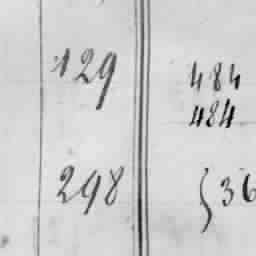 129 484
484
298 } 36